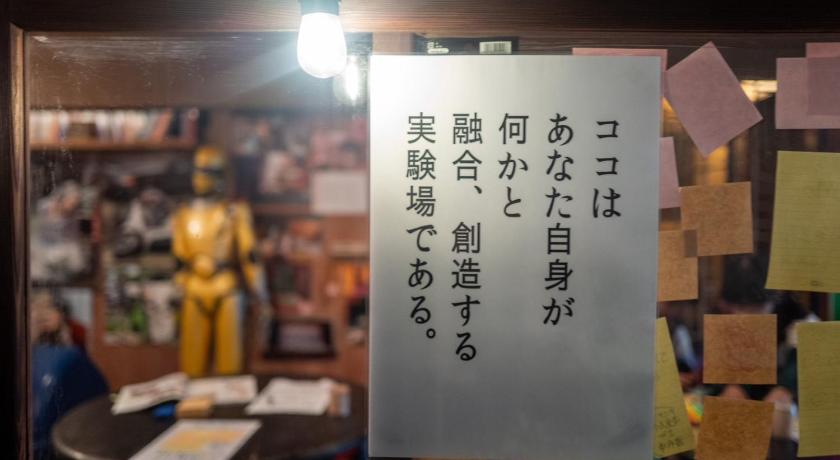 ココは
あなた自身が
何かと
融合、創造する
実験場である。